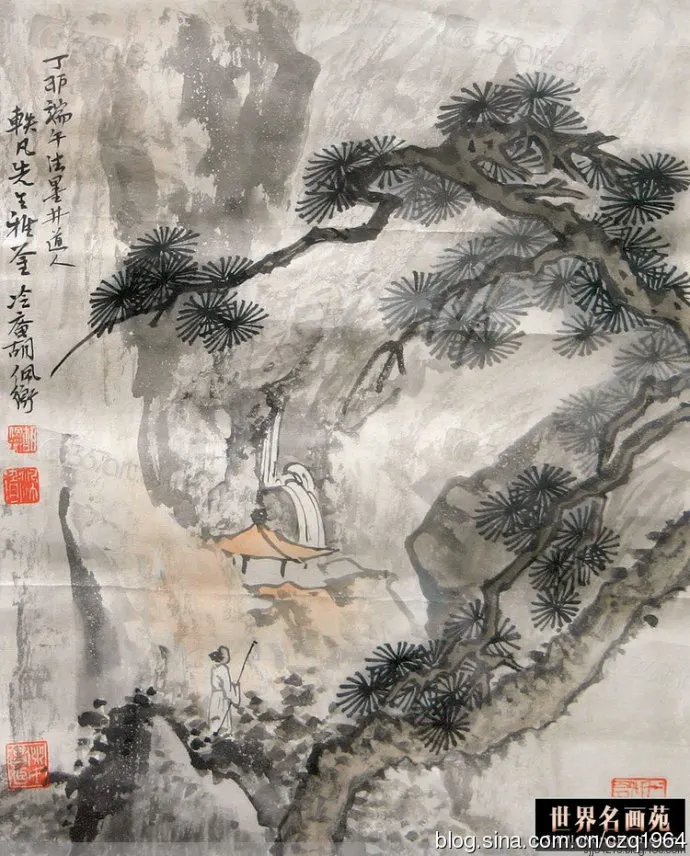 丁卯端午法墨井道人
軼凡先生雅鉴 冷庵胡佩衡
365art.com
世界名画苑
blog.sina.com.cn/czq1964